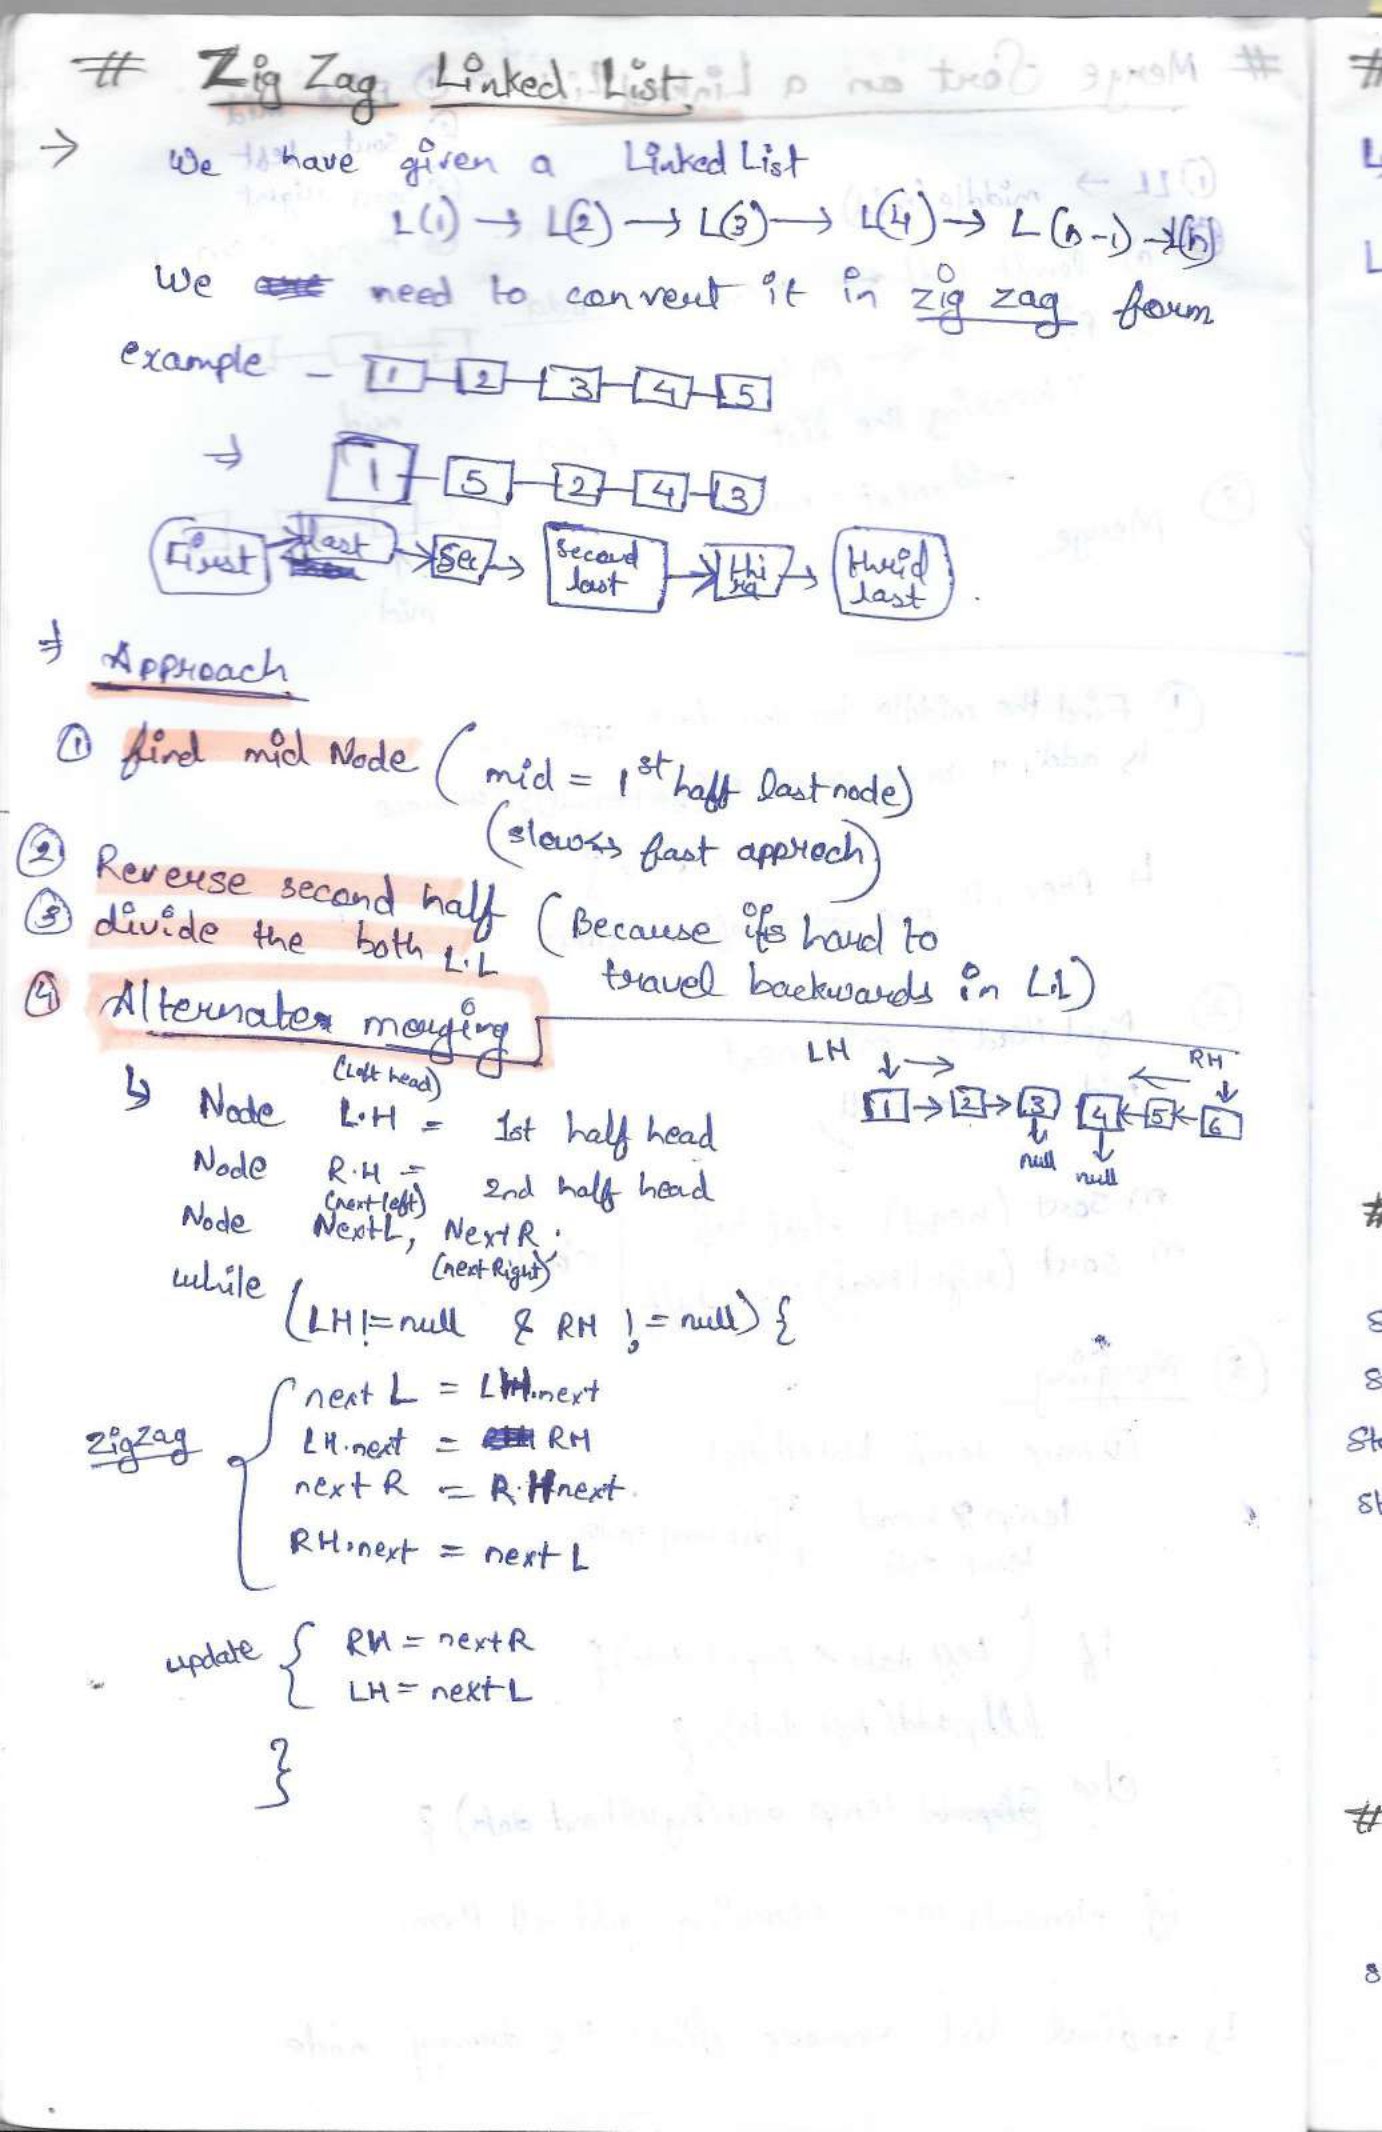 # Zig Zag Linked List.
→ We have given a Linked List
L(1) → L(2) → L(3) → L(4) → L(n-1) → L(n)
We need to convert it in zig zag form
example - 1 2 3 4 5
⇒ 1 5 2 4 3
First → last → Sec → Second last → Third → thrid last .
⇒ Approach
① find mid Node ( mid = 1st half last node)
(slow ↔ fast approch)
② Reverse second half (Because it's hard to
③ divide the both L.L travel backwards in L.L)
④ Alternate merging
LH ↓ → ← RH ↓
1 → 2 → 3 4 ← 5 ← 6
null null
↳ Node L.H = 1st half head
(Left head)
Node R.H = 2nd half head
Node NextL, NextR;
(next left) (next Right)
while (LH != null & RH != null) {
zigzag { next L = LH.next
LH.next = RH
next R = R.H next.
RH.next = next L
update { RH = next R
LH = next L
}
#
L
L
#
S
S
St
St
#
s